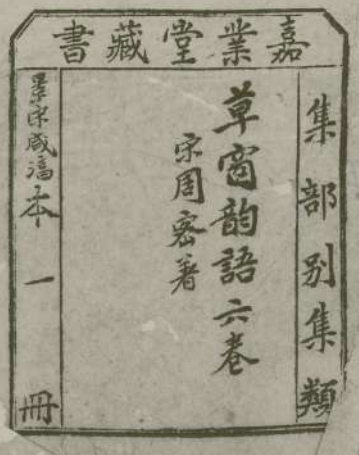 嘉業堂藏書
集部別集類
草窗韵語六卷
宋周密著
景宋咸淳本一冊